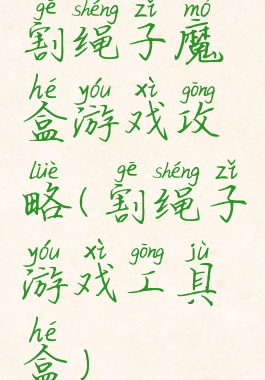 gē shéng zǐ mó
割绳子魔
hé yóu xì gōng
盒游戏攻
lüè gē shéng zǐ
略(割绳子
yóu xì gōng jù
游戏工具
hé
盒)